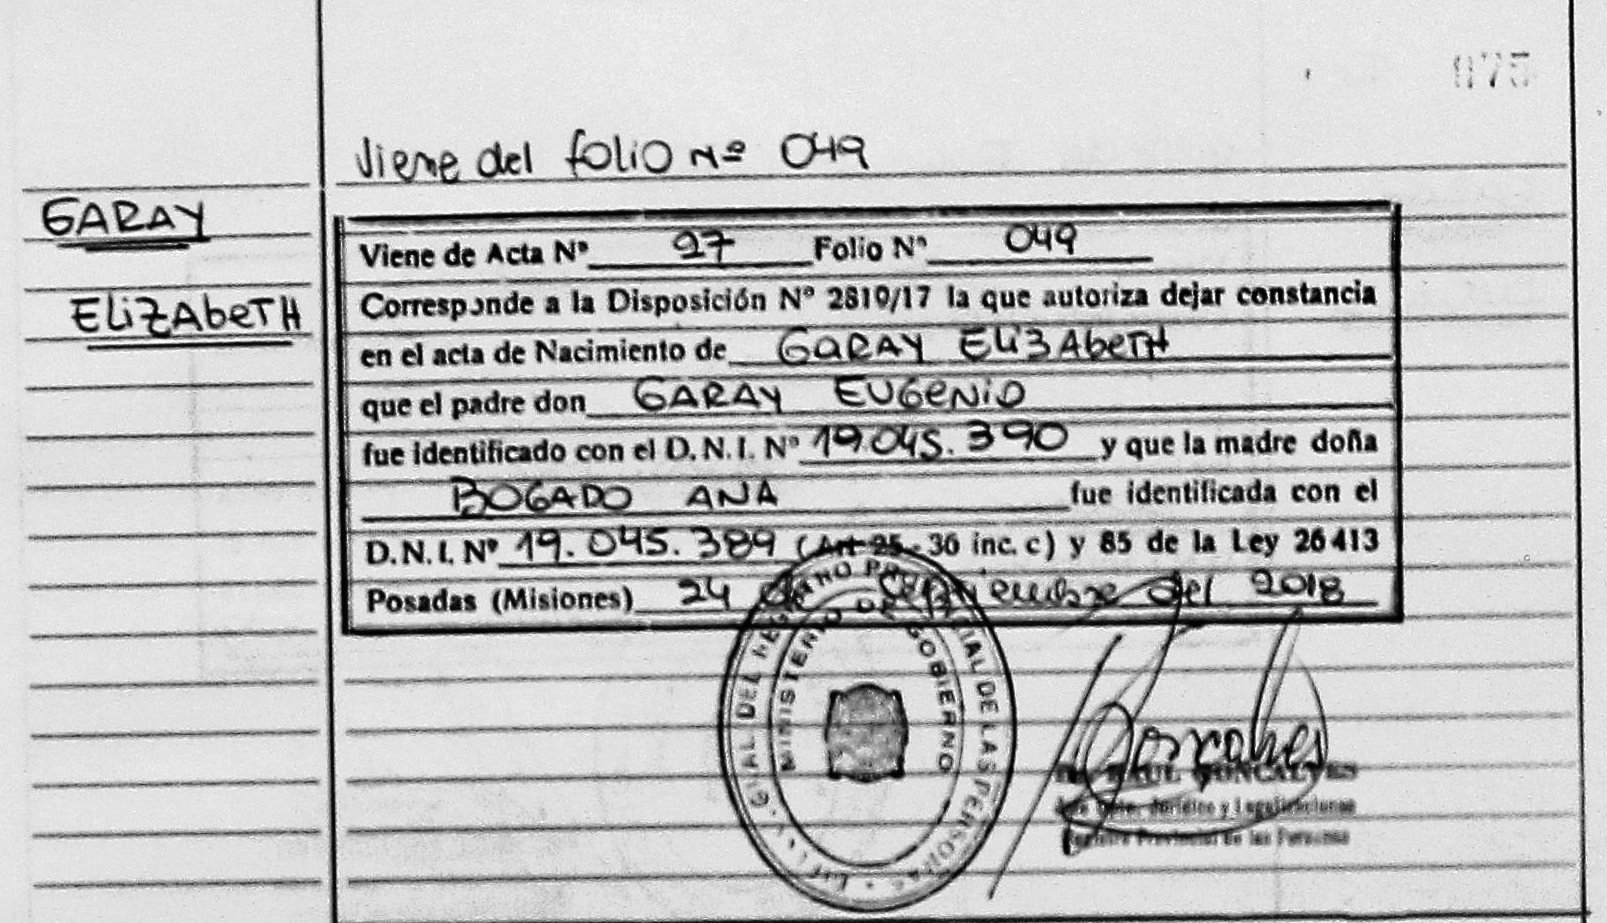 075
Viene del folio Nº 049
GARAY
ELIZAbETH
Viene de Acta Nº 27 Folio Nº 049
Corresponde a la Disposición Nº 2810/17 la que autoriza dejar constancia
en el acta de Nacimiento de GARAY ELIZAbETH
que el padre don GARAY EUGENIO
fue identificado con el D.N.I. Nº 19.045.390 y que la madre doña
BOGADO ANA fue identificada con el
D.N.I. Nº 19.045.389 (Art 25 - 36 inc. c) y 85 de la Ley 26413
Posadas (Misiones) 24 de Septiembre del 2018
MINISTERIO DE GOBIERNO
RAUL GONCALVES
Jurídico y Legalizaciones
Registro Provincial de las Personas